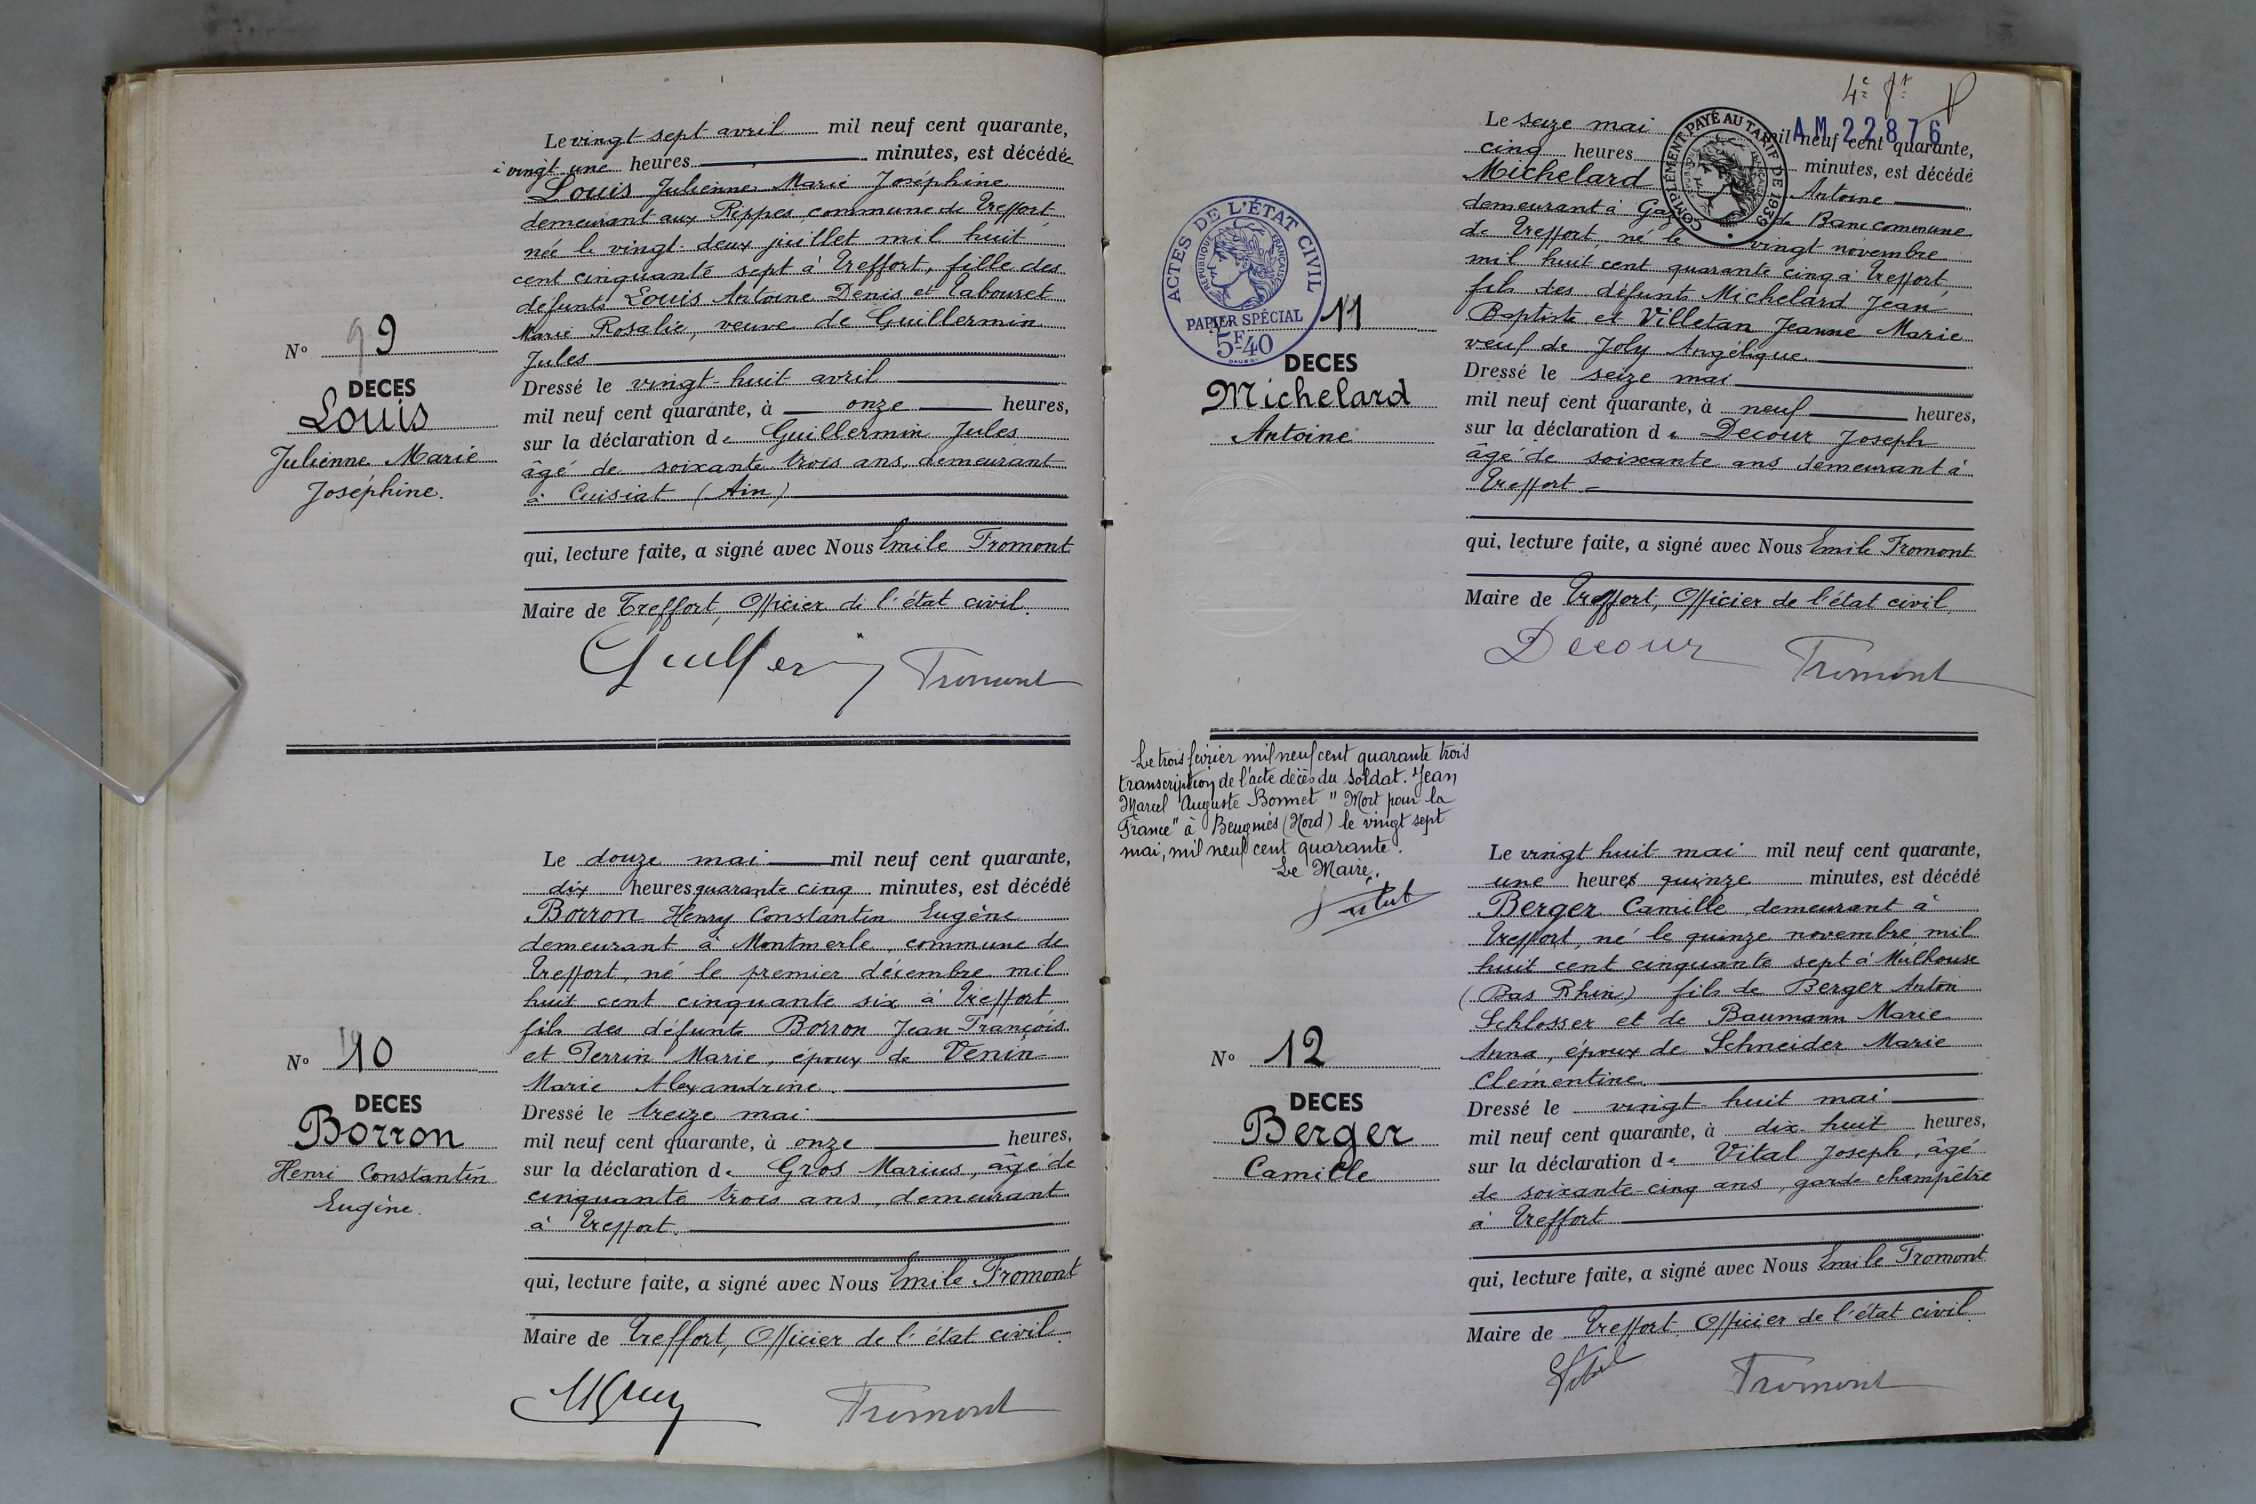 Le vingt sept avril mil neuf cent quarante,
à vingt une heures minutes, est décédée
Louis Julienne Marie Joséphine
demeurant aux Rippes commune de Treffort
née le vingt-deux juillet mil huit
cent cinquante sept à Treffort, fille des
défunts Louis Antoine Denis et Tabouret
Marie Rosalie, veuve de Guillermin
Jules
Nº 9
DECES
Louis
Julienne Marie
Joséphine.
Dressé le vingt-huit avril
mil neuf cent quarante, à onze heures,
sur la déclaration de Guillermin Jules
âgé de soixante trois ans, demeurant
à Cuisiat (Ain)
qui, lecture faite, a signé avec Nous Emile Fromont
Maire de Treffort, Officier de l'état civil.
Fromont
Le douze mai mil neuf cent quarante,
dix heures quarante cinq minutes, est décédé
Borron Henry Constantin Eugène
demeurant à Montmerle, commune de
Treffort, né le premier décembre mil
huit cent cinquante six à Treffort
fils des défunts Borron Jean François
et Perrin Marie, époux de Venin
Marie Alexandrine.
Nº 10
DECES
Borron
Henri Constantin
Eugène.
Dressé le treize mai
mil neuf cent quarante, à onze heures,
sur la déclaration de Gros Marius, âgé de
cinquante trois ans, demeurant
à Treffort.
qui, lecture faite, a signé avec Nous Emile Fromont
Maire de Treffort, Officier de l'état civil.
Fromont
AM 22876
COMPLÉMENT PAYÉ AU TARIF DE 1939
Le seize mai mil neuf cent quarante,
cinq heures minutes, est décédé
Michelard Antoine
demeurant à de Banc commune
de Treffort, né le vingt novembre
mil huit cent quarante cinq à Treffort
fils des défunts Michelard Jean
Baptiste et Villetan Jeanne Marie
veuf de Joly Angélique.
ACTES DE L'ÉTAT CIVIL
RÉPUBLIQUE FRANÇAISE
PAPIER SPÉCIAL
5F40
11
DECES
Michelard
Antoine
Dressé le seize mai
mil neuf cent quarante, à neuf heures,
sur la déclaration de Decour Joseph
âgé de soixante ans demeurant à
Treffort
qui, lecture faite, a signé avec Nous Emile Fromont
Maire de Treffort, Officier de l'état civil
Decour Fromont
Le trois février mil neuf cent quarante trois
transcription de l'acte décès du soldat. Jean
Marcel Auguste Bonnet "Mort pour la
France" à Beugnies (Nord) le vingt sept
mai, mil neuf cent quarante.
Le Maire,
Le vingt huit mai mil neuf cent quarante,
une heures quinze minutes, est décédé
Berger Camille demeurant à
Treffort, né le quinze novembre mil
huit cent cinquante sept à Mulhouse
(Bas Rhin) fils de Berger Anton
Schlosser et de Baumann Marie
Anna, époux de Schneider Marie
Clémentine.
Nº 12
DECES
Berger
Camille
Dressé le vingt-huit mai
mil neuf cent quarante, à dix-huit heures,
sur la déclaration de Vital Joseph, âgé
de soixante cinq ans, garde champêtre
à Treffort
qui, lecture faite, a signé avec Nous Emile Fromont
Maire de Treffort Officier de l'état civil.
Vital Fromont